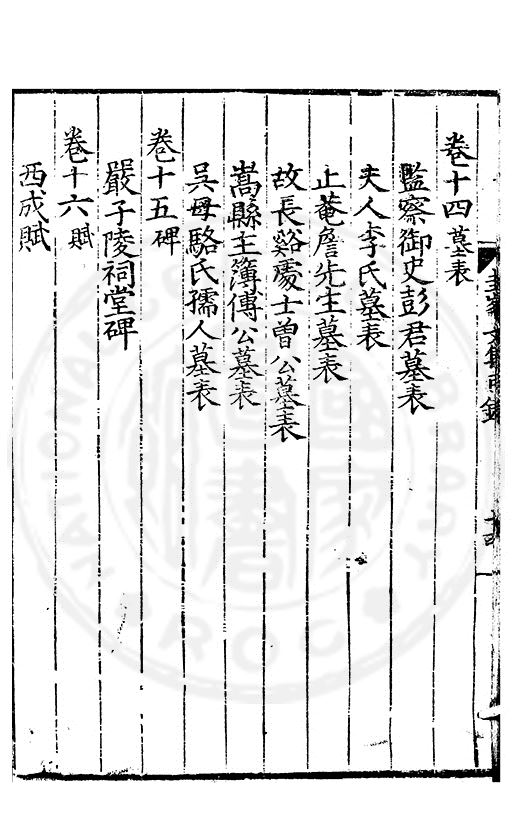 卷十四墓表
監察御史彭君墓表
夫人李氏墓表
止菴詹先生墓表
故長谿處士曾公墓表
嵩縣主簿傅公墓表
吳母駱氏孺人墓表
卷十五碑
嚴子陵祠堂碑
卷十六賦
西成賦